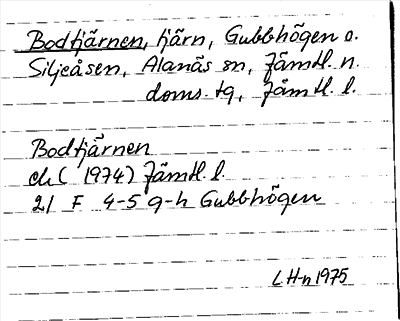 Bodtjärnen, tjärn, Gubbhögen o.
Siljeåsen, Alanäs sn, Jämtl. n.
doms. tg, Jämtl. l.
Bodtjärnen
ek ( 1974) Jämtl. l.
21 F 4-5 g-h Gubbhögen
LHn 1975